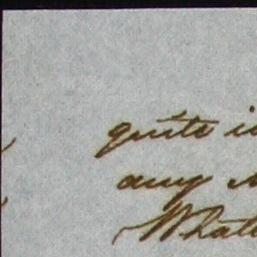 quite i
any
What